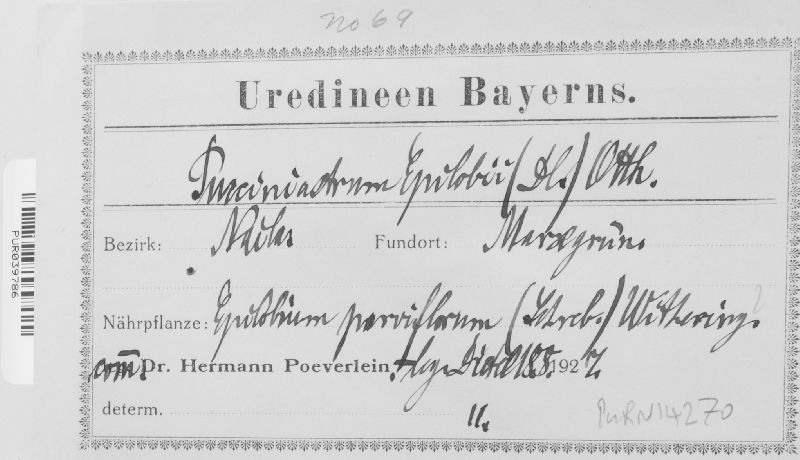 No 69
Uredineen Bayerns.
Pucciniastrum Epilobii (Dl.) Otth.
Bezirk: Naila Fundort: Marxgrün.
Nährpflanze: Epilobium parviflorum (Schreb.) Withering.
com̅. Dr. Hermann Poeverlein. leg. 18.8.1927.
determ. II.
PURN14270
PUR039786